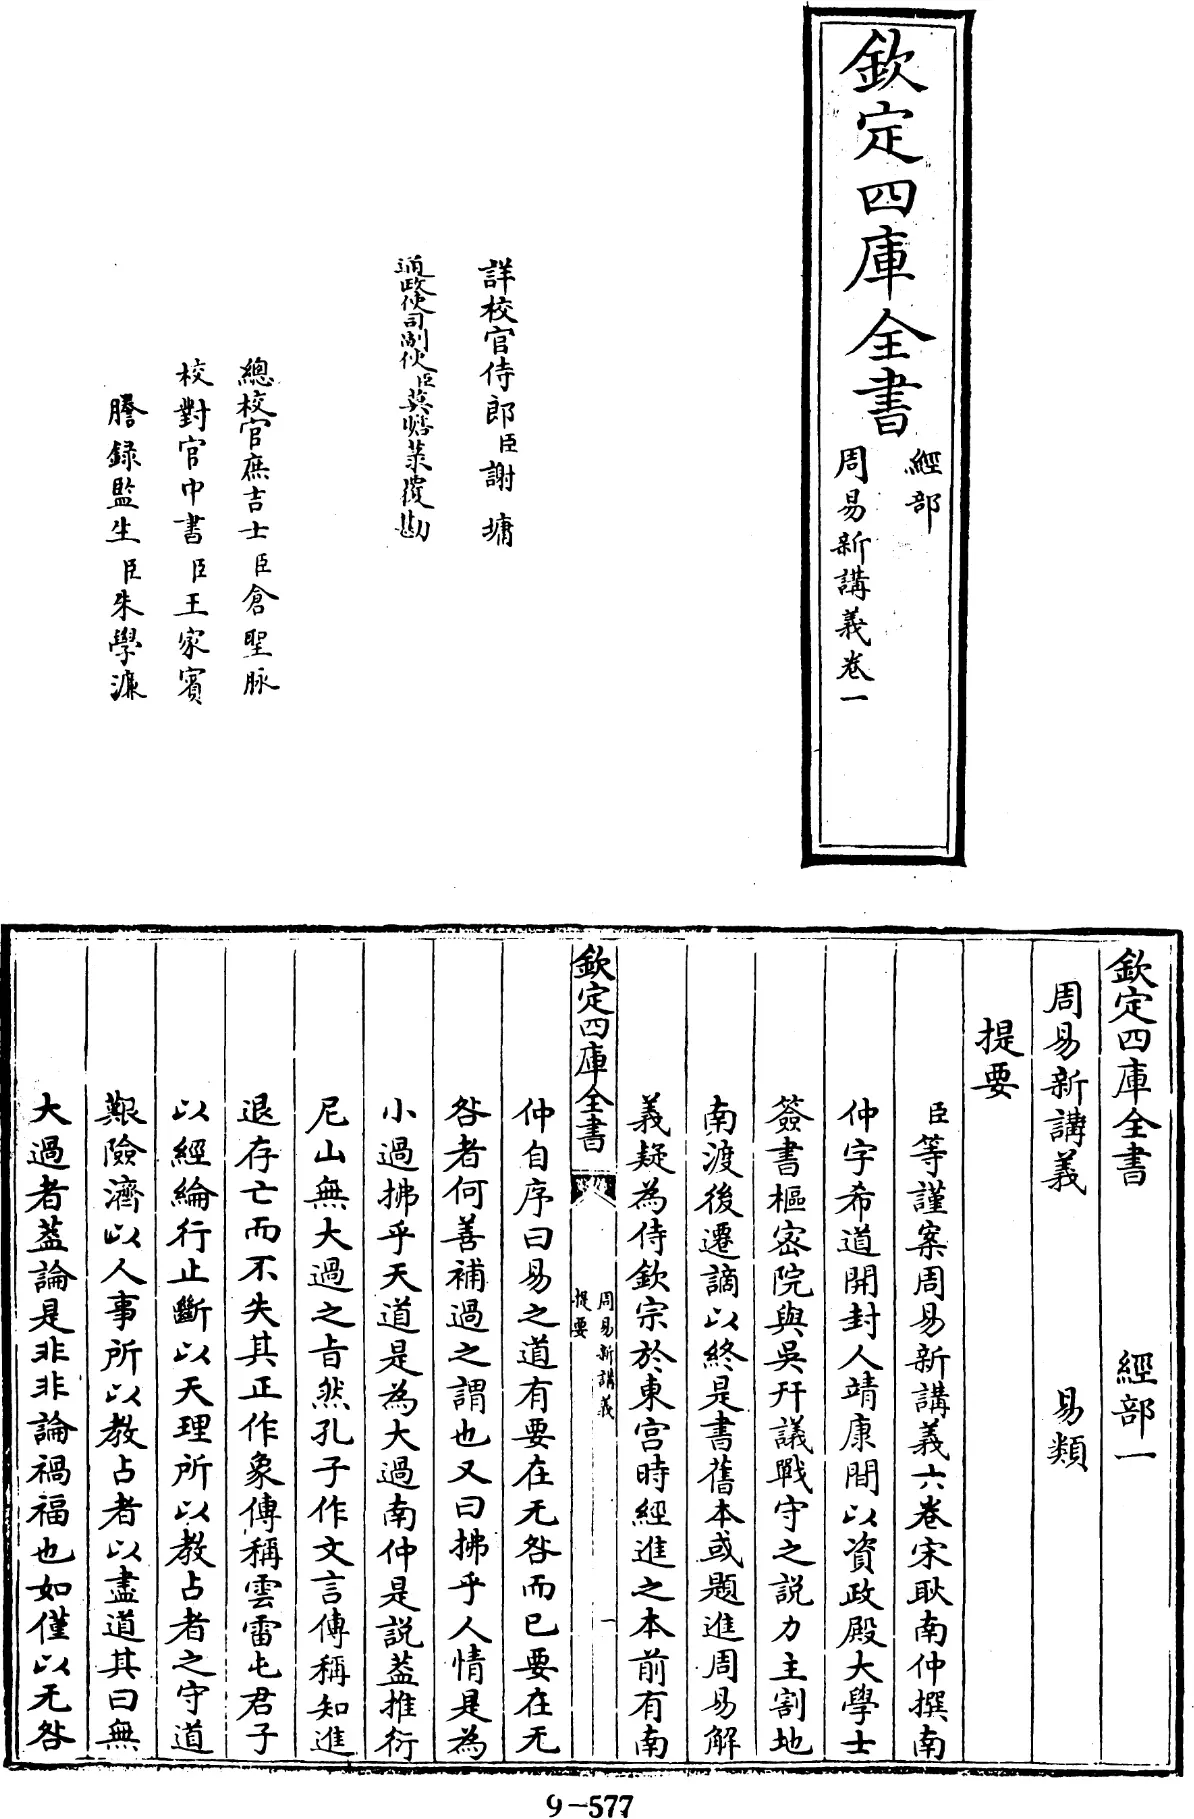 欽定四庫全書
經部
周易新講義卷一
詳校官侍郎臣謝墉
通政使司副使臣莫瞻菉覆勘
總校官庶吉士臣倉聖脉
校對官中書臣王家賓
謄錄監生臣朱學濂
欽定四庫全書 經部一
周易新講義 易類
提要
臣等謹案周易新講義六卷宋耿南仲撰南
仲字希道開封人靖康間以資政殿大學士
簽書樞密院與吳幵議戰守之説力主割地
南渡後遷謫以終是書舊本或題進周易解
義疑為侍欽宗於東宫時經進之本前有南
欽定四庫全書
周易新講義
提要
一
仲自序曰易之道有要在无咎而已要在无
咎者何善補過之謂也又曰拂乎人情是為
小過拂乎天道是為大過南仲是説葢推衍
尼山無大過之㫖然孔子作文言傳稱知進
退存亡而不失其正作象傳稱雲雷屯君子
以經綸行止斷以天理所以教占者之守道
艱險濟以人事所以教占者以盡道其曰無
大過者葢論是非非論禍福也如僅以无咎
9-577